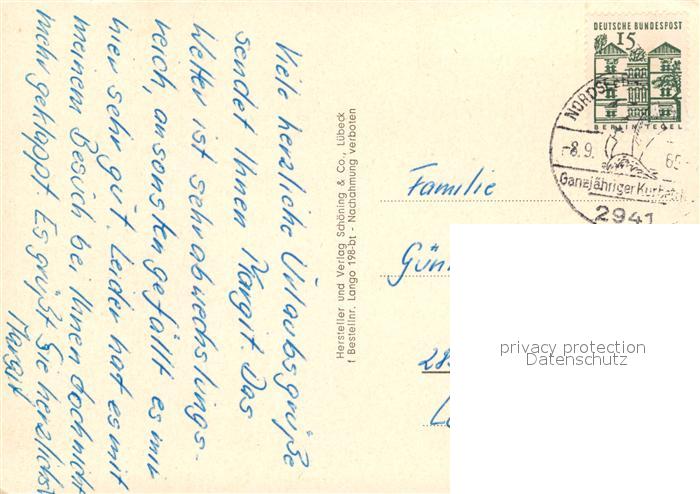 Viele herzliche Urlaubsgrüße
sendet Ihnen Margit. Das
Wetter ist sehr abwechslungs-
reich, ansonsten gefällt es mir
hier sehr gut. Leider hat es mit
meinem Besuch bei Ihnen doch nicht
mehr geklappt. Es grüßt Sie herzlichst
Margit
Hersteller und Verlag Schöning & Co., Lübeck
† Bestellnr. Lango 198-bt - Nachahmung verboten
DEUTSCHE BUNDESPOST
15
BERLIN-TEGEL
-8.9.
65-
Ganzjähriger
2941
Familie
privacy protection
Datenschutz